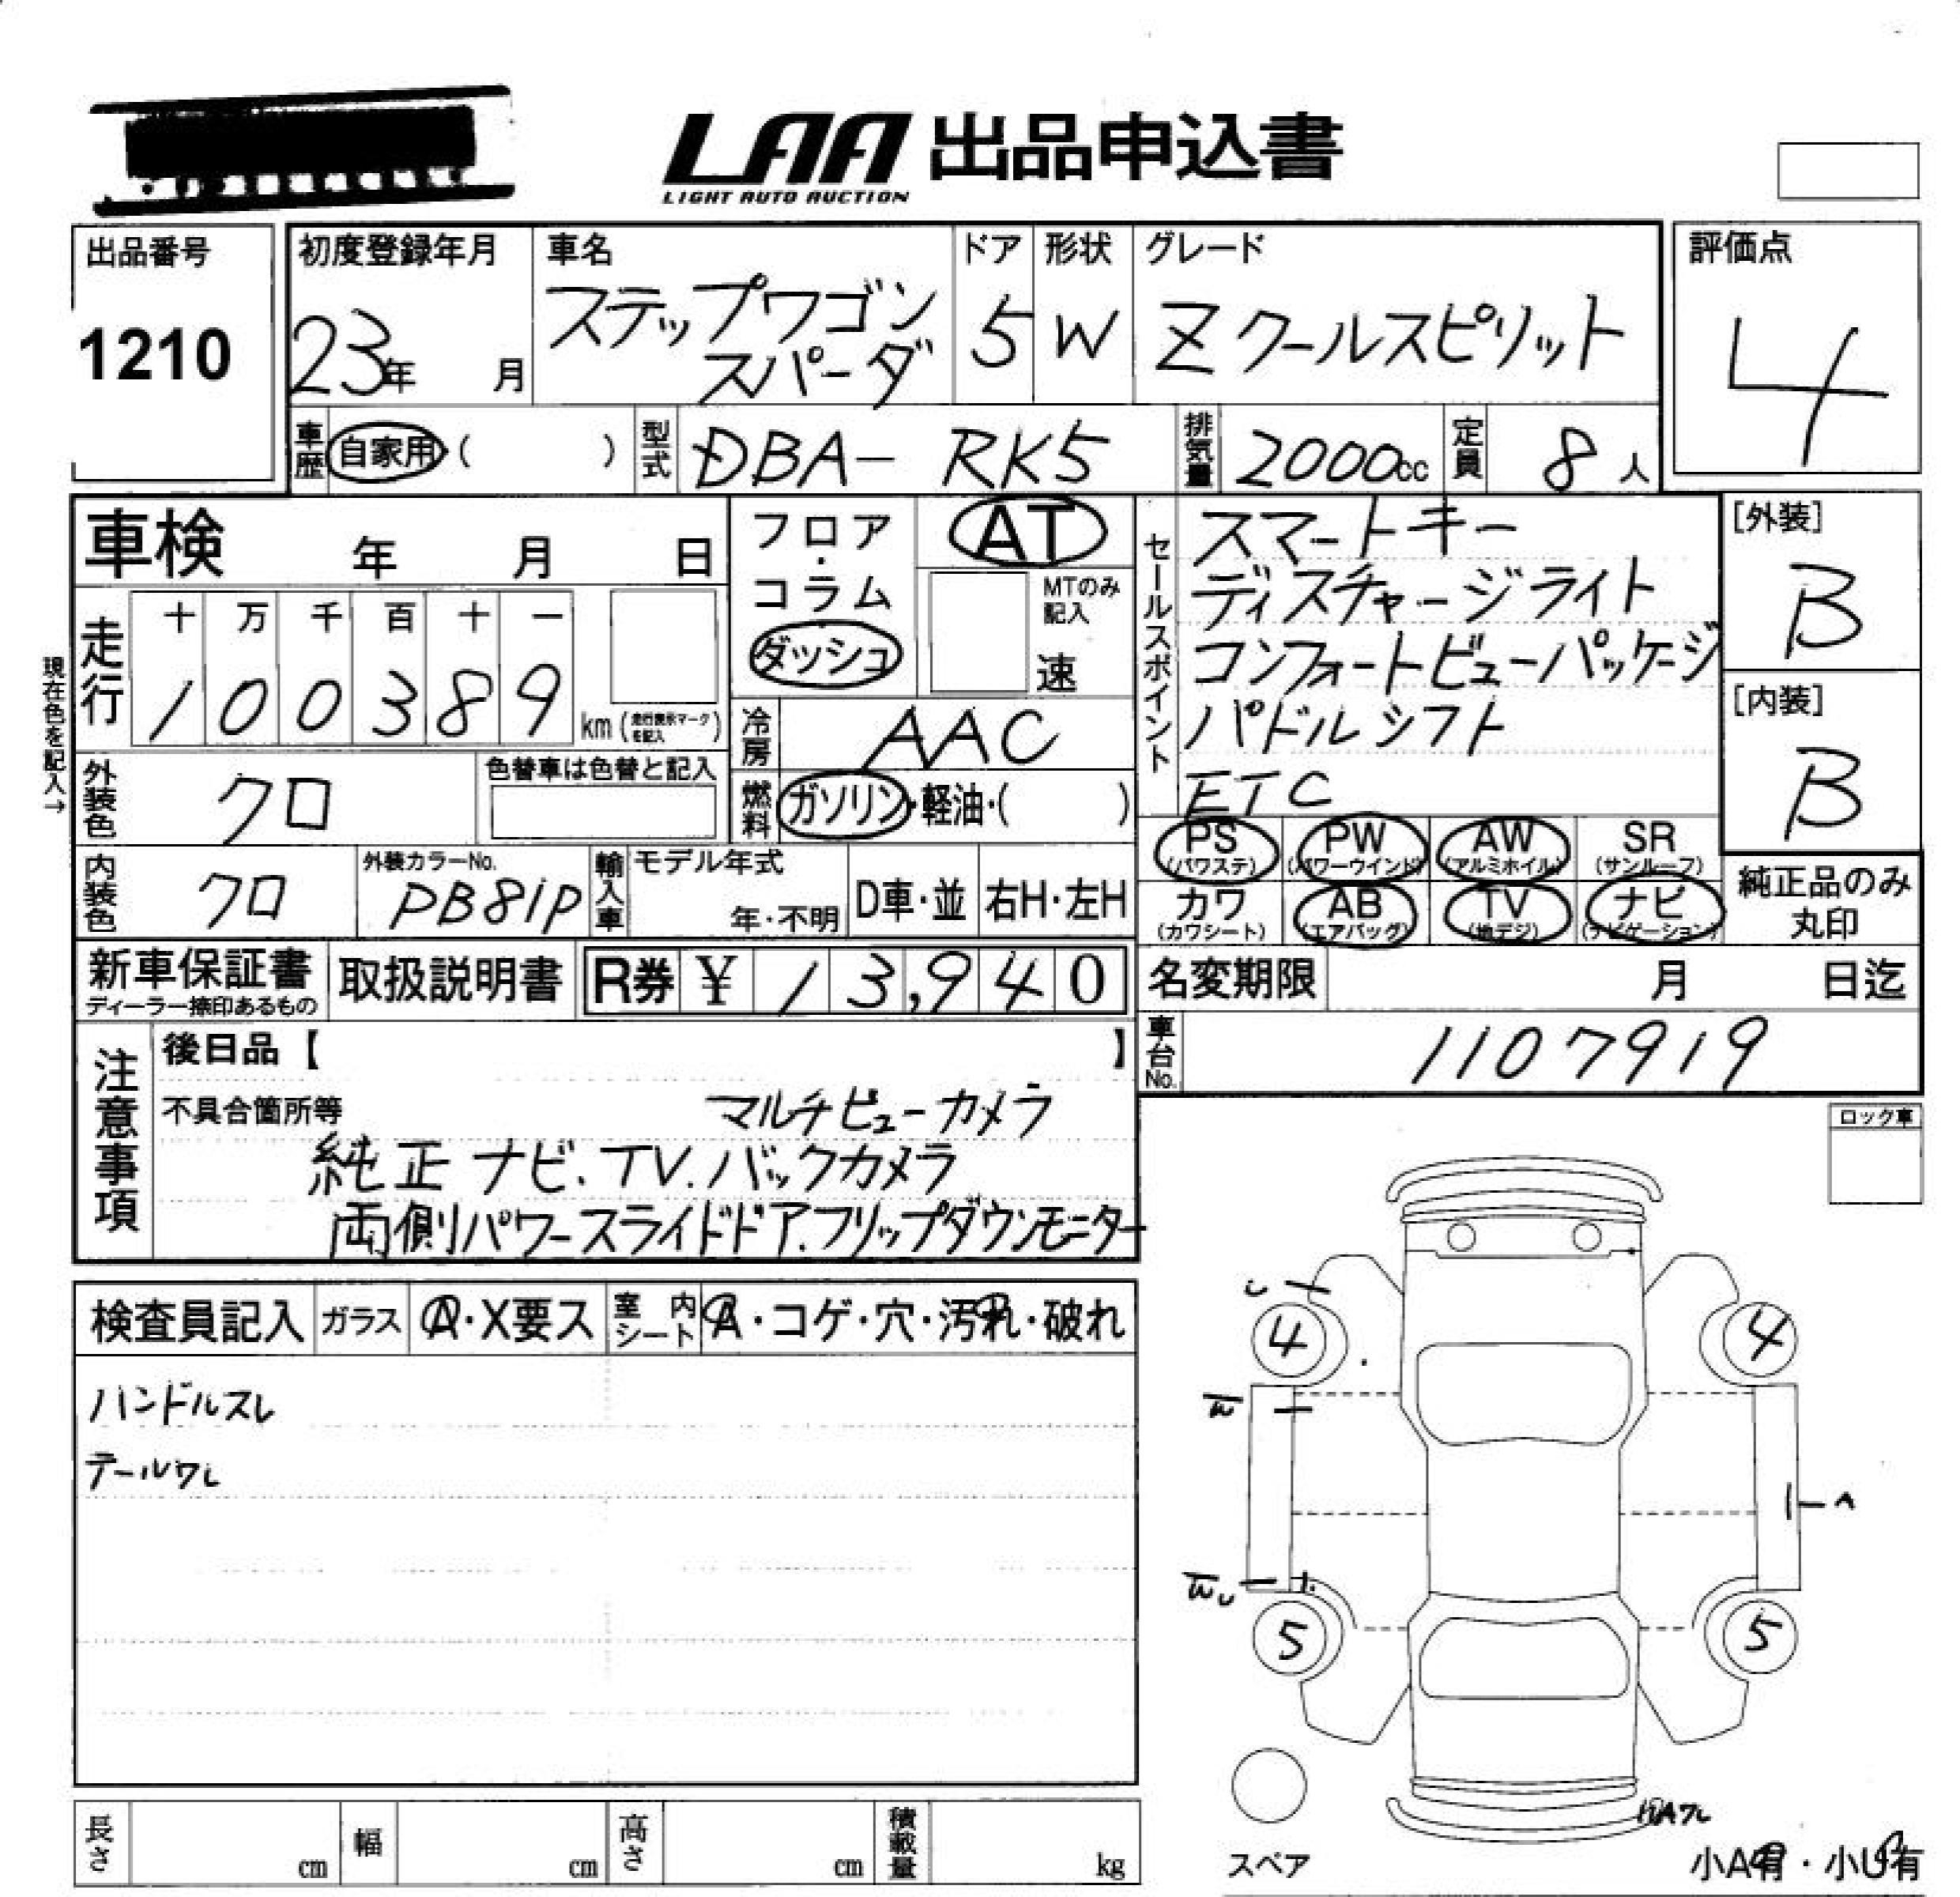 LAA 出品申込書
LIGHT AUTO AUCTION
出品番号
1210
初度登録年月
23年 月
車名
ステップワゴン
スパーダ
ドア
5
形状
W
グレード
Z クールスピリット
評価点
4
車歴 自家用 ( )
型式 DBA- RK5
排気量 2000cc
定員 8人
車検 年 月 日
フロア・コラム・ダッシュ
AT
MTのみ記入
速
セールスポイント
スマートキー
ディスチャージライト
コンフォートビューパッケージ
パドルシフト
ETC
[外装]
B
[内装]
B
現在色を記入→
走行
十 万 千 百 十 一
1 0 0 3 8 9 km (走行表示マークを記入)
冷房 AAC
燃料 ガソリン・軽油・( )
外装色 クロ
色替車は色替と記入
PS (パワステ)
PW (パワーウインド)
AW (アルミホイル)
SR (サンルーフ)
カワ (カワシート)
AB (エアバッグ)
TV (地デジ)
ナビ (ナビゲーション)
純正品のみ丸印
内装色 クロ
外装カラーNo.
PB81P
輸入車
モデル年式
年・不明
D車・並
右H・左H
新車保証書
ディーラー捺印あるもの
取扱説明書
R券 ¥ 13,940
名変期限 月 日迄
車台No. 1107919
注意事項
後日品【 】
不具合箇所等
マルチビューカメラ
純正 ナビ.TV.バックカメラ
両側パワースライドドア.フリップダウンモニター
ロック車
検査員記入
ガラス A・X要ス
室内シート A・コゲ・穴・汚れ・破れ
ハンドルスレ
テールワレ
4
4
W
5
5
スペア
小A有・小U有
長さ cm
幅 cm
高さ cm
積載量 kg